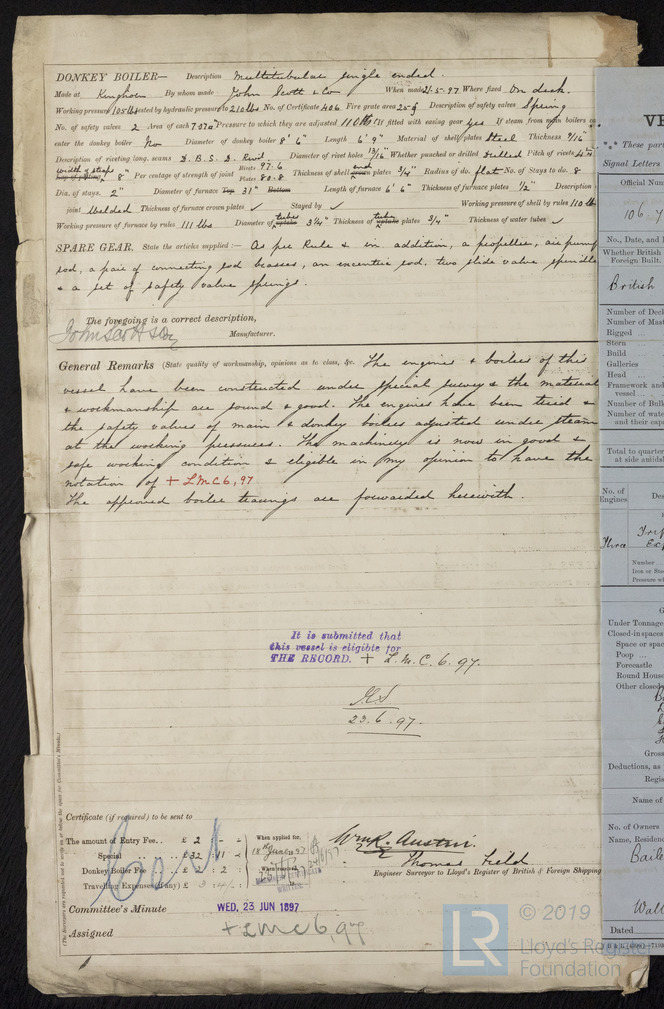 DONKEY BOILER— Description Multitubular single ended.
Made at Kinghorn By whom made John Scott & Co When made 21-5-97 Where fixed On deck.
Working pressure 105 lbs tested by hydraulic pressure to 210 lbs No. of Certificate 406 Fire grate area Description of safety valves Spring
No. of safety valves 2 Area of each 7.07" Pressure to which they are adjusted 110 lbs If fitted with easing gear yes If steam from main boilers can
enter the donkey boiler No Diameter of donkey boiler 8' 6" Length 6' 9" Material of shell plates Steel Thickness 9/16"
Description of riveting long. seams D.B.S. D. Rivd Diameter of rivet holes 13/16" Whether punched or drilled Drilled Pitch of rivets
width of straps 8" Per centage of strength of joint Rivets 97.6 Plates 80.8 Thickness of shell end plates 3/4" Radius of do. flat No. of Stays to do. 8
Dia. of stays. 2" Diameter of furnace Top 31" Bottom Length of furnace 6' 6" Thickness of furnace plates 1/2" Description
joint Welded Thickness of furnace crown plates ✓ Stayed by ✓ Working pressure of shell by rules 110 lbs
Working pressure of furnace by rules 111 lbs Diameter of tubes 3 1/4" Thickness of tube plates 3/4" Thickness of water tubes ✓
SPARE GEAR. State the articles supplied:— As per Rule & in addition, a propeller, air pump
rod, a pair of connecting rod brasses, an excentric rod, two slide valve spindles
& a set of safety valve springs.
The foregoing is a correct description,
John Scott & Co Manufacturer.
General Remarks (State quality of workmanship, opinions as to class, &c. The engines & boilers of this
vessel have been constructed under special survey & the material
& workmanship are sound & good. The engines have been tried &
the safety valves of main & donkey boilers adjusted under steam
at the working pressures. The machinery is now in good &
safe working condition & eligible in my opinion to have the
notation of + LMC 6,97
The approved boiler tracings are forwarded herewith.
It is submitted that
this vessel is eligible for
THE RECORD. + L.M.C. 6.97.
23.6.97.
Certificate (if required) to be sent to
The amount of Entry Fee.. £ 2 : - : -
Special £ 32 : 11 : -
Donkey Boiler Fee £ 2 : 2 : -
Travelling Expenses (if any) £
When applied for,
18th June 1897
When received,
Wm R. Austin.
Thomas Field
Engineer Surveyor to Lloyd's Register of British & Foreign Shipping
Committee's Minute WED, 23 JUN 1897
Assigned + LMC 6,97
(The Surveyors are requested not to write on or below the space for Committee's Minute.)
Signal Letters
Official Num
106,7
No., Date, and
Whether British
Foreign Built.
British
Number of Deck
Number of Mast
Rigged
Stern
Build
Galleries
Head
Framework and
vessel
Number of Bulk
Number of wate
and their capa
Total to quarter
at side amidsh
No. of
Engines
Three
Number
Iron or Ste
Pressure wh
Under Tonnage
Closed-in spaces
Space or spac
Poop
Forecastle
Round House
Other closed
Gross
Deductions, as
Regis
Name of
No. of Owners
Name, Residenc
Dated
LR
© 2019
Lloyd's Register
Foundation